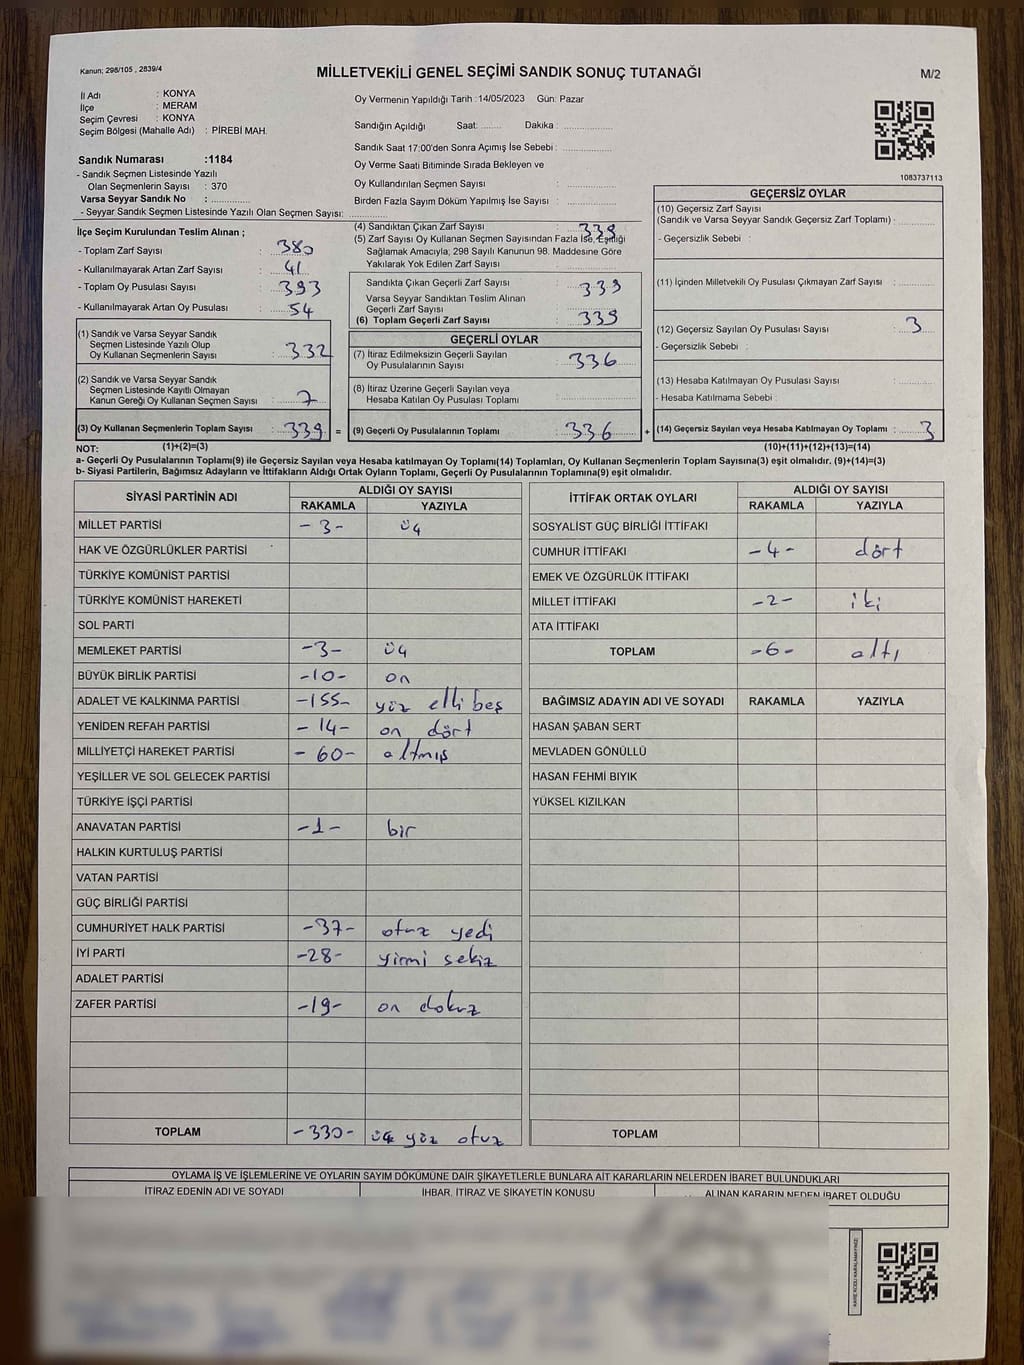 Kanun; 298/105 , 2839/4
MİLLETVEKİLİ GENEL SEÇİMİ SANDIK SONUÇ TUTANAĞI
M/2
İl Adı : KONYA
İlçe : MERAM
Seçim Çevresi : KONYA
Seçim Bölgesi (Mahalle Adı) : PİREBİ MAH.
Sandık Numarası :1184
- Sandık Seçmen Listesinde Yazılı
Olan Seçmenlerin Sayısı : 370
Varsa Seyyar Sandık No : ..............
- Seyyar Sandık Seçmen Listesinde Yazılı Olan Seçmen Sayısı: ..............
Oy Vermenin Yapıldığı Tarih :14/05/2023 Gün: Pazar
Sandığın Açıldığı Saat: ....... Dakika : ................
Sandık Saat 17:00'den Sonra Açımış İse Sebebi : ................
Oy Verme Saati Bitiminde Sırada Bekleyen ve
Oy Kullandırılan Seçmen Sayısı : ................
Birden Fazla Sayım Döküm Yapılmış İse Sayısı : ................
1083737113
İlçe Seçim Kurulundan Teslim Alınan ;
- Toplam Zarf Sayısı : 380
- Kullanılmayarak Artan Zarf Sayısı : 41
- Toplam Oy Pusulası Sayısı : 393
- Kullanılmayarak Artan Oy Pusulası : 54
(1) Sandık ve Varsa Seyyar Sandık
Seçmen Listesinde Yazılı Olup
Oy Kullanan Seçmenlerin Sayısı : 332
(2) Sandık ve Varsa Seyyar Sandık
Seçmen Listesinde Kayıtlı Olmayan
Kanun Gereği Oy Kullanan Seçmen Sayısı : 7
(3) Oy Kullanan Seçmenlerin Toplam Sayısı : 339 =
(4) Sandıktan Çıkan Zarf Sayısı : 339
(5) Zarf Sayısı Oy Kullanan Seçmen Sayısından Fazla İse, Eşitliği
Sağlamak Amacıyla, 298 Sayılı Kanunun 98. Maddesine Göre
Yakılarak Yok Edilen Zarf Sayısı : ................
Sandıkta Çıkan Geçerli Zarf Sayısı : 339
Varsa Seyyar Sandıktan Teslim Alınan
Geçerli Zarf Sayısı
(6) Toplam Geçerli Zarf Sayısı : 339
GEÇERLİ OYLAR
(7) İtiraz Edilmeksizin Geçerli Sayılan
Oy Pusulalarının Sayısı : 336
(8) İtiraz Üzerine Geçerli Sayılan veya
Hesaba Katılan Oy Pusulası Toplamı : ................
(9) Geçerli Oy Pusulalarının Toplamı : 336 +
GEÇERSİZ OYLAR
(10) Geçersiz Zarf Sayısı
(Sandık ve Varsa Seyyar Sandık Geçersiz Zarf Toplamı) : ..........
- Geçersizlik Sebebi :
(11) İçinden Milletvekili Oy Pusulası Çıkmayan Zarf Sayısı : ..........
(12) Geçersiz Sayılan Oy Pusulası Sayısı : 3
- Geçersizlik Sebebi :
(13) Hesaba Katılmayan Oy Pusulası Sayısı : ..........
- Hesaba Katılmama Sebebi :
(14) Geçersiz Sayılan veya Hesaba Katılmayan Oy Toplamı : 3
NOT: (1)+(2)=(3)
(10)+(11)+(12)+(13)=(14)
a- Geçerli Oy Pusulalarının Toplamı(9) ile Geçersiz Sayılan veya Hesaba katılmayan Oy Toplamı(14) Toplamları, Oy Kullanan Seçmenlerin Toplam Sayısına(3) eşit olmalıdır. (9)+(14)=(3)
b- Siyasi Partilerin, Bağımsız Adayların ve İttifakların Aldığı Ortak Oyların Toplamı, Geçerli Oy Pusulalarının Toplamına(9) eşit olmalıdır.
SİYASİ PARTİNİN ADI ALDIĞI OY SAYISI
RAKAMLA YAZIYLA
MİLLET PARTİSİ - 3 - üç
HAK VE ÖZGÜRLÜKLER PARTİSİ
TÜRKİYE KOMÜNİST PARTİSİ
TÜRKİYE KOMÜNİST HAREKETİ
SOL PARTİ
MEMLEKET PARTİSİ -3- üç
BÜYÜK BİRLİK PARTİSİ -10- on
ADALET VE KALKINMA PARTİSİ -155- yüz elli beş
YENİDEN REFAH PARTİSİ - 14- on dört
MİLLİYETÇİ HAREKET PARTİSİ - 60- altmış
YEŞİLLER VE SOL GELECEK PARTİSİ
TÜRKİYE İŞÇİ PARTİSİ
ANAVATAN PARTİSİ -1- bir
HALKIN KURTULUŞ PARTİSİ
VATAN PARTİSİ
GÜÇ BİRLİĞİ PARTİSİ
CUMHURİYET HALK PARTİSİ -37- otuz yedi
İYİ PARTİ -28- yirmi sekiz
ADALET PARTİSİ
ZAFER PARTİSİ -19- on dokuz
TOPLAM -330- üç yüz otuz
İTTİFAK ORTAK OYLARI ALDIĞI OY SAYISI
RAKAMLA YAZIYLA
SOSYALİST GÜÇ BİRLİĞİ İTTİFAKI
CUMHUR İTTİFAKI -4- dört
EMEK VE ÖZGÜRLÜK İTTİFAKI
MİLLET İTTİFAKI -2- iki
ATA İTTİFAKI
TOPLAM -6- altı
BAĞIMSIZ ADAYIN ADI VE SOYADI RAKAMLA YAZIYLA
HASAN ŞABAN SERT
MEVLADEN GÖNÜLLÜ
HASAN FEHMİ BIYIK
YÜKSEL KIZILKAN
TOPLAM
OYLAMA İŞ VE İŞLEMLERİNE VE OYLARIN SAYIM DÖKÜMÜNE DAİR ŞİKAYETLERLE BUNLARA AİT KARARLARIN NELERDEN İBARET BULUNDUKLARI
İTİRAZ EDENİN ADI VE SOYADI İHBAR, İTİRAZ VE ŞİKAYETİN KONUSU ALINAN KARARIN NEDEN İBARET OLDUĞU